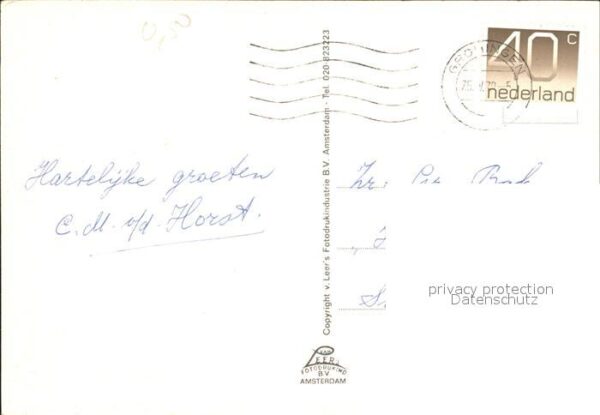 0,50
40 c
nederland
GRONINGEN
Hartelijke groeten
C.M. v/d Horst.
Copyright v. Leer's Fotodrukindustrie B.V. Amsterdam - Tel. 020-823223
privacy protection
Datenschutz
van
LEER's
FOTODRUKIND
B.V
AMSTERDAM